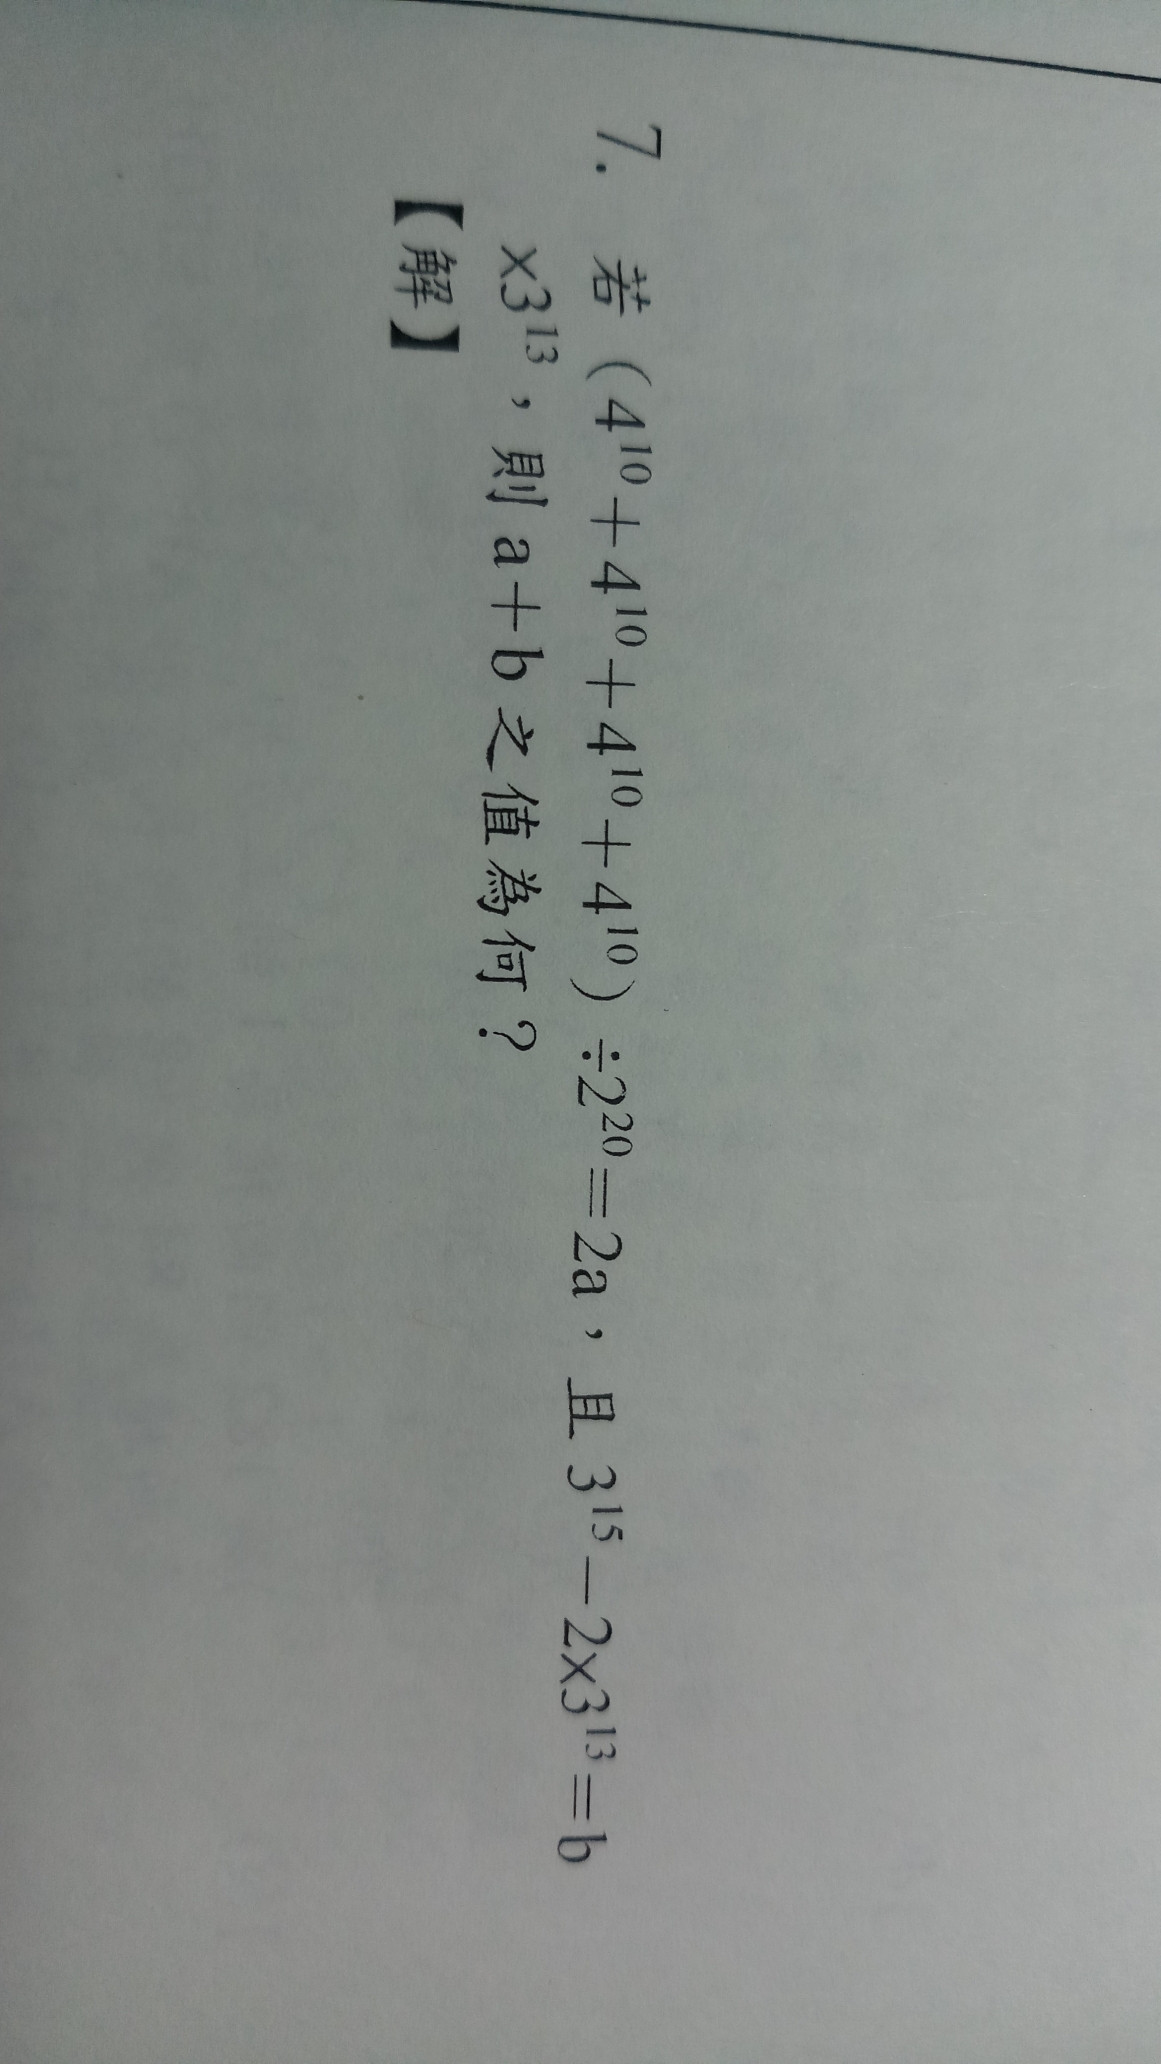 7. 若（4¹⁰＋4¹⁰＋4¹⁰＋4¹⁰）÷2²⁰＝2a，且 3¹⁵－2x3¹³＝b
x3¹³，則 a＋b 之值為何？
【解】